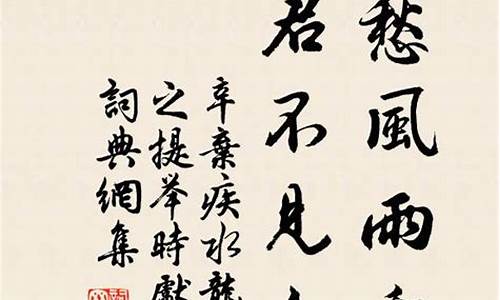 愁風雨
君不見
辛棄疾水龍
之提举時獻
詞典網集